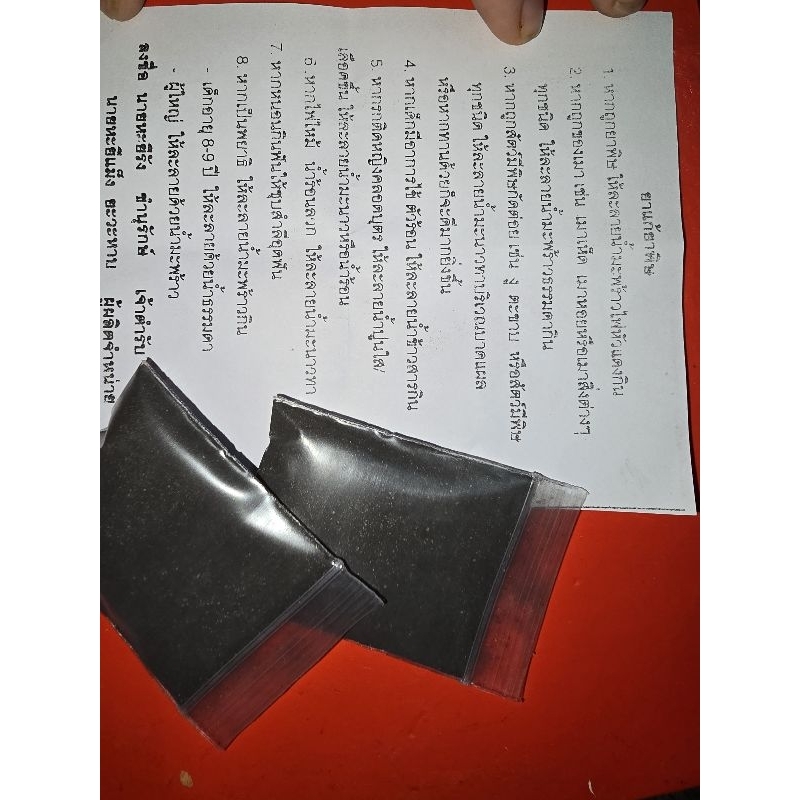 ยาแก้ยาพิษ
1. หากถูกยาพิษ ให้ละลายน้ำมะพร้าวไฟหัวแดงกิน
2. หากถูกของเมา เช่น เมาเห็ด เมาหอยหรือเมาสิ่งต่างๆ
ทุกชนิด ให้ละลายน้ำมะพร้าวธรรมดากิน
3. หากถูกสัตว์มีพิษกัดต่อย เช่น งู ตะขาบ หรือสัตว์มีพิษ
ทุกชนิด ให้ละลายน้ำมะนาวทาบริเวณบาดแผล
หรือหากทานด้วยก็จะดีมากยิ่งขึ้น
4. หากเด็กมีอาการไข้ ตัวร้อน ให้ละลายน้ำข้าวสารกิน
5. หากรกติดหญิงคลอดบุตร ให้ละลายน้ำปูนใส/
เลือดขึ้น ให้ละลายน้ำมะนาวหรือน้ำร้อน
6. หากไฟไหม้ น้ำร้อนลวก ให้ละลายน้ำมะนาวทา
7. หากหนอนกินฟันให้ชุบสำลีอุดฟัน
8. หากเป็นพยาธิ ให้ละลายน้ำมะพร้าวกิน
- เด็กอายุ 8-9 ปี ให้ละลายด้วยน้ำธรรมดา
- ผู้ใหญ่ ให้ละลายด้วยน้ำมะพร้าว
ลงชื่อ นายหะยีรัง ชำบุรักษ์ เจ้าตำรับ
นายหะยีแม็ง ยะวะหาบ ผู้ผลิตจำหน่าย